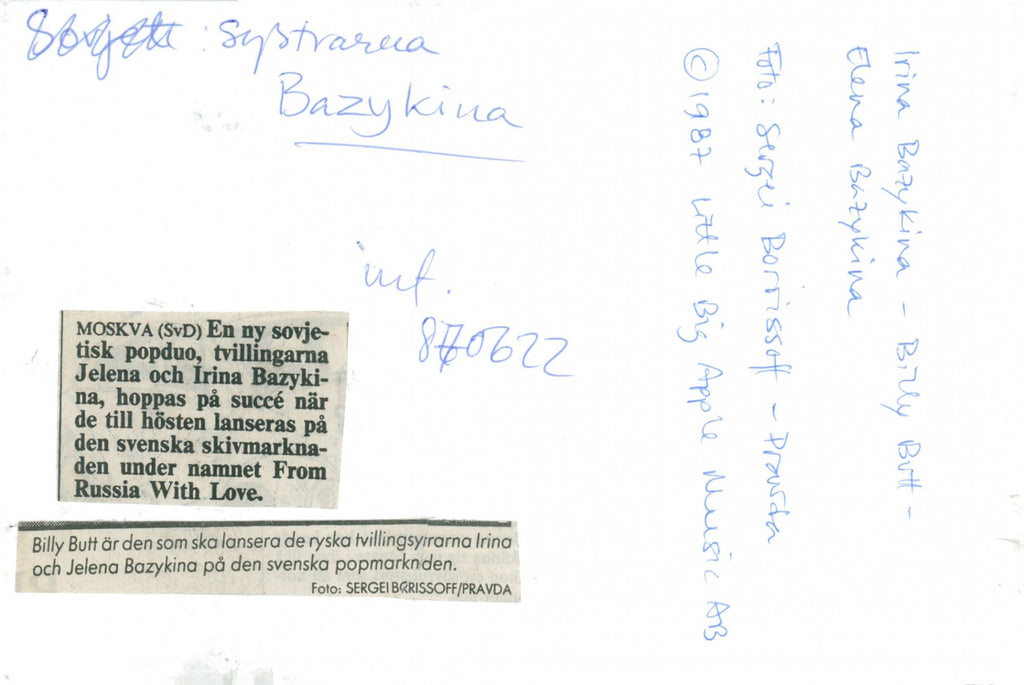 Sovjett : Systrarna
Bazykina
inf.
870622
MOSKVA (SvD) En ny sovje-
tisk popduo, tvillingarna
Jelena och Irina Bazyki-
na, hoppas på succé när
de till hösten lanseras på
den svenska skivmarkna-
den under namnet From
Russia With Love.
Billy Butt är den som ska lansera de ryska tvillingsyrrarna Irina
och Jelena Bazykina på den svenska popmarknden.
Foto: SERGEI BORISSOFF/PRAVDA
Irina Bazykina - Billy Butt -
Elena Bazykina
Foto: Sergei Borrissoff - Pravda
© 1987 Little Big Apple Music AB